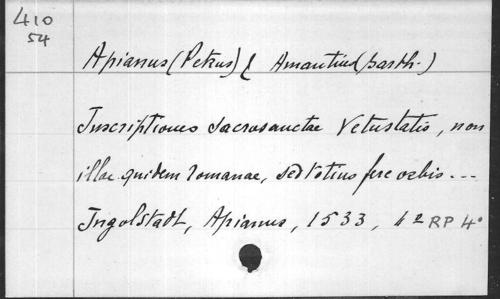 410
54
Apianus (Petrus) & Amantius (barth.)
Inscriptiones sacrosanctae Vetustatis, non
illae quidem romanae, sed totius fere orbis ...
Ingolstadt, Apianus, 1533, 4º RP 4º